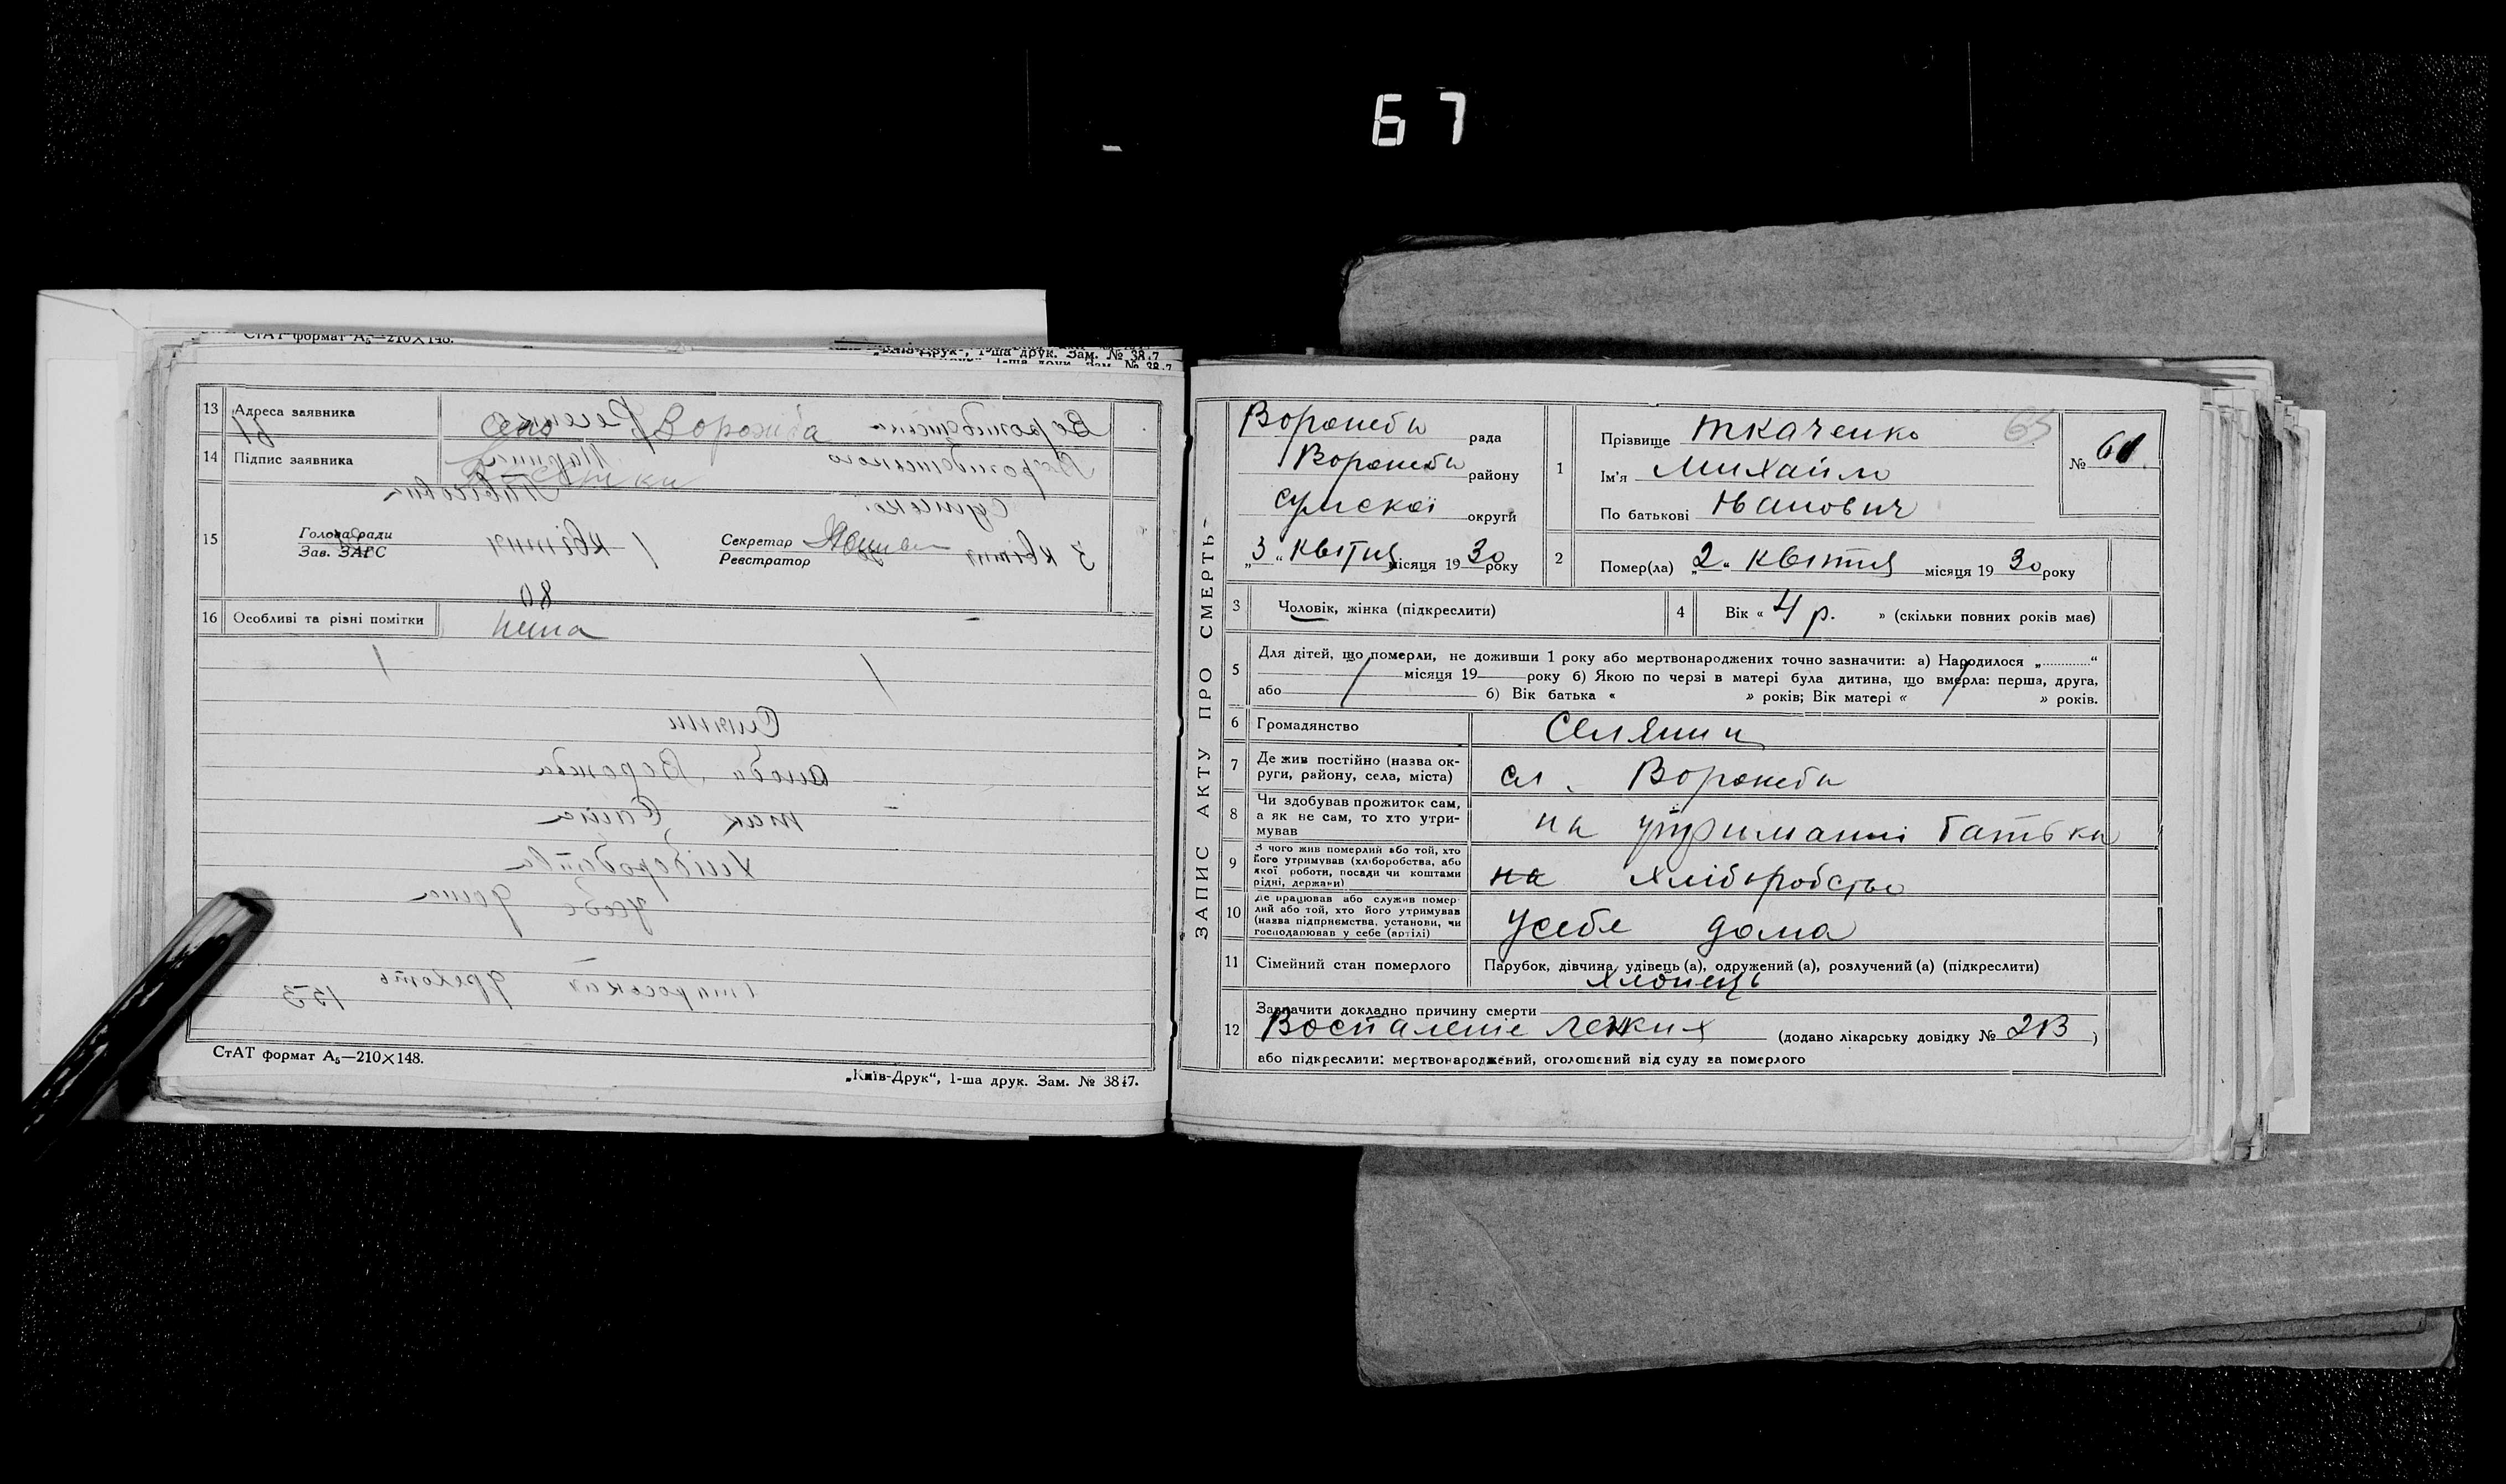 67
СтАТ формат А₅—210×148.
1-ша друк. Зам. № 3847
13 Адреса заявника Село Ворожба
14 Підпис заявника
15 Голова ради
Зав. ЗАГС
Секретар
Реєстратор
16 Особливі та різні помітки нема
СтАТ формат А₅—210×148.
„Київ-Друк“, 1-ша друк. Зам. № 3847.
ЗАПИС АКТУ ПРО СМЕРТЬ
Ворожба рада
Ворожба району
Сумскої округи
„3“ квітня місяця 1930 року
1 Прізвище Ткаченко 65
Ім'я Михайло
По батькові Іванович
№ 61
2 Помер(ла) „2“ квітня місяця 1930 року
3 Чоловік, жінка (підкреслити)
4 Вік « 4 р. » (скільки повних років має)
5 Для дітей, що померли, не доживши 1 року або мертвонароджених точно зазначити: а) Народилося „............“
місяця 19 року б) Якою по черзі в матері була дитина, що вмерла: перша, друга,
або б) Вік батька « » років; Вік матері « » років.
6 Громадянство Селянин
7 Де жив постійно (назва ок-
руги, району, села, міста) сл. Ворожба
8 Чи здобував прожиток сам,
а як не сам, то хто утри-
мував на утриманні батька
9 З чого жив померлий або той, хто
його утримував (хліборобства, або
якої роботи, посади чи коштами
рідні, держави) на хліборобство
10 Де працював або служив помер-
лий або той, хто його утримував
(назва підприємства, установи, чи
господарював у себе (артілі) усебе дома
11 Сімейний стан померлого Парубок, дівчина, удівець (а), одружений (а), розлучений (а) (підкреслити)
хлопець
12 Зазначити докладно причину смерти
Воспаленіе легких (додано лікарську довідку № 213)
або підкреслити: мертвонароджений, оголошений від суду за померлого